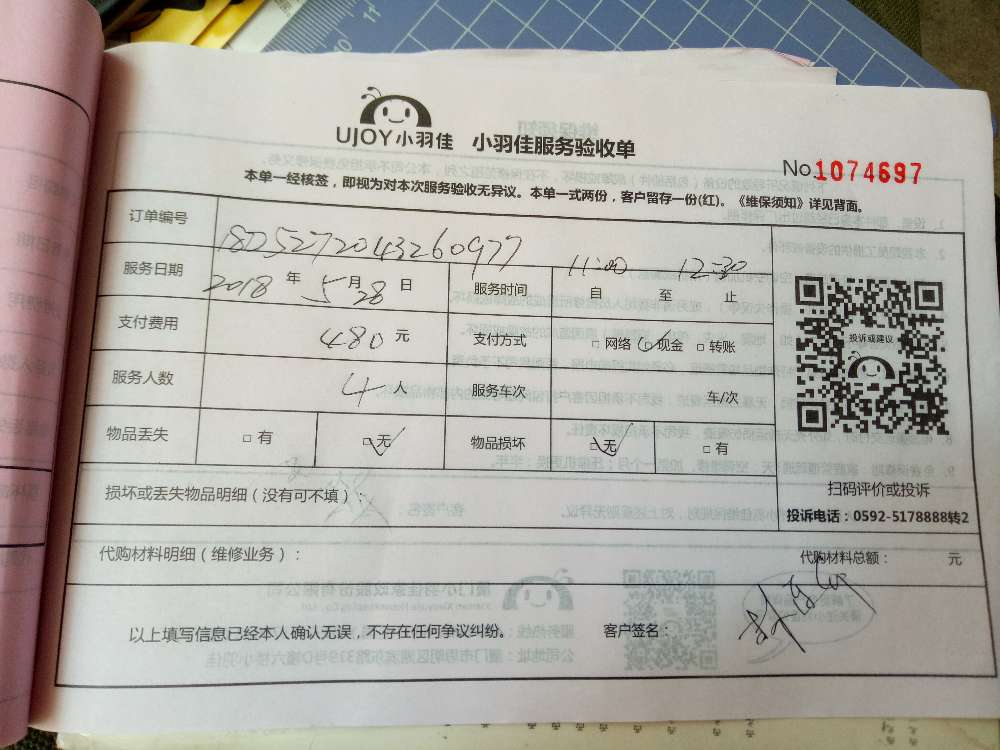 UJOY小羽佳 小羽佳服务验收单
No 1074697
本单一经核签，即视为对本次服务验收无异议。本单一式两份，客户留存一份(红)。《维保须知》详见背面。
订单编号 1805272043260977
服务日期 2018 年 5 月 28 日 服务时间 11:00 自 至 12:30 止
支付费用 480 元 支付方式 □ 网络 □ 现金 □ 转账
服务人数 4 人 服务车次 车/次
物品丢失 □ 有 □ 无 物品损坏 □ 无 □ 有
投诉或建议
扫码评价或投诉
投诉电话：0592-5178888转2
损坏或丢失物品明细（没有可不填）：
代购材料明细（维修业务）： 代购材料总额： 元
以上填写信息已经本人确认无误，不存在任何争议纠纷。 客户签名：